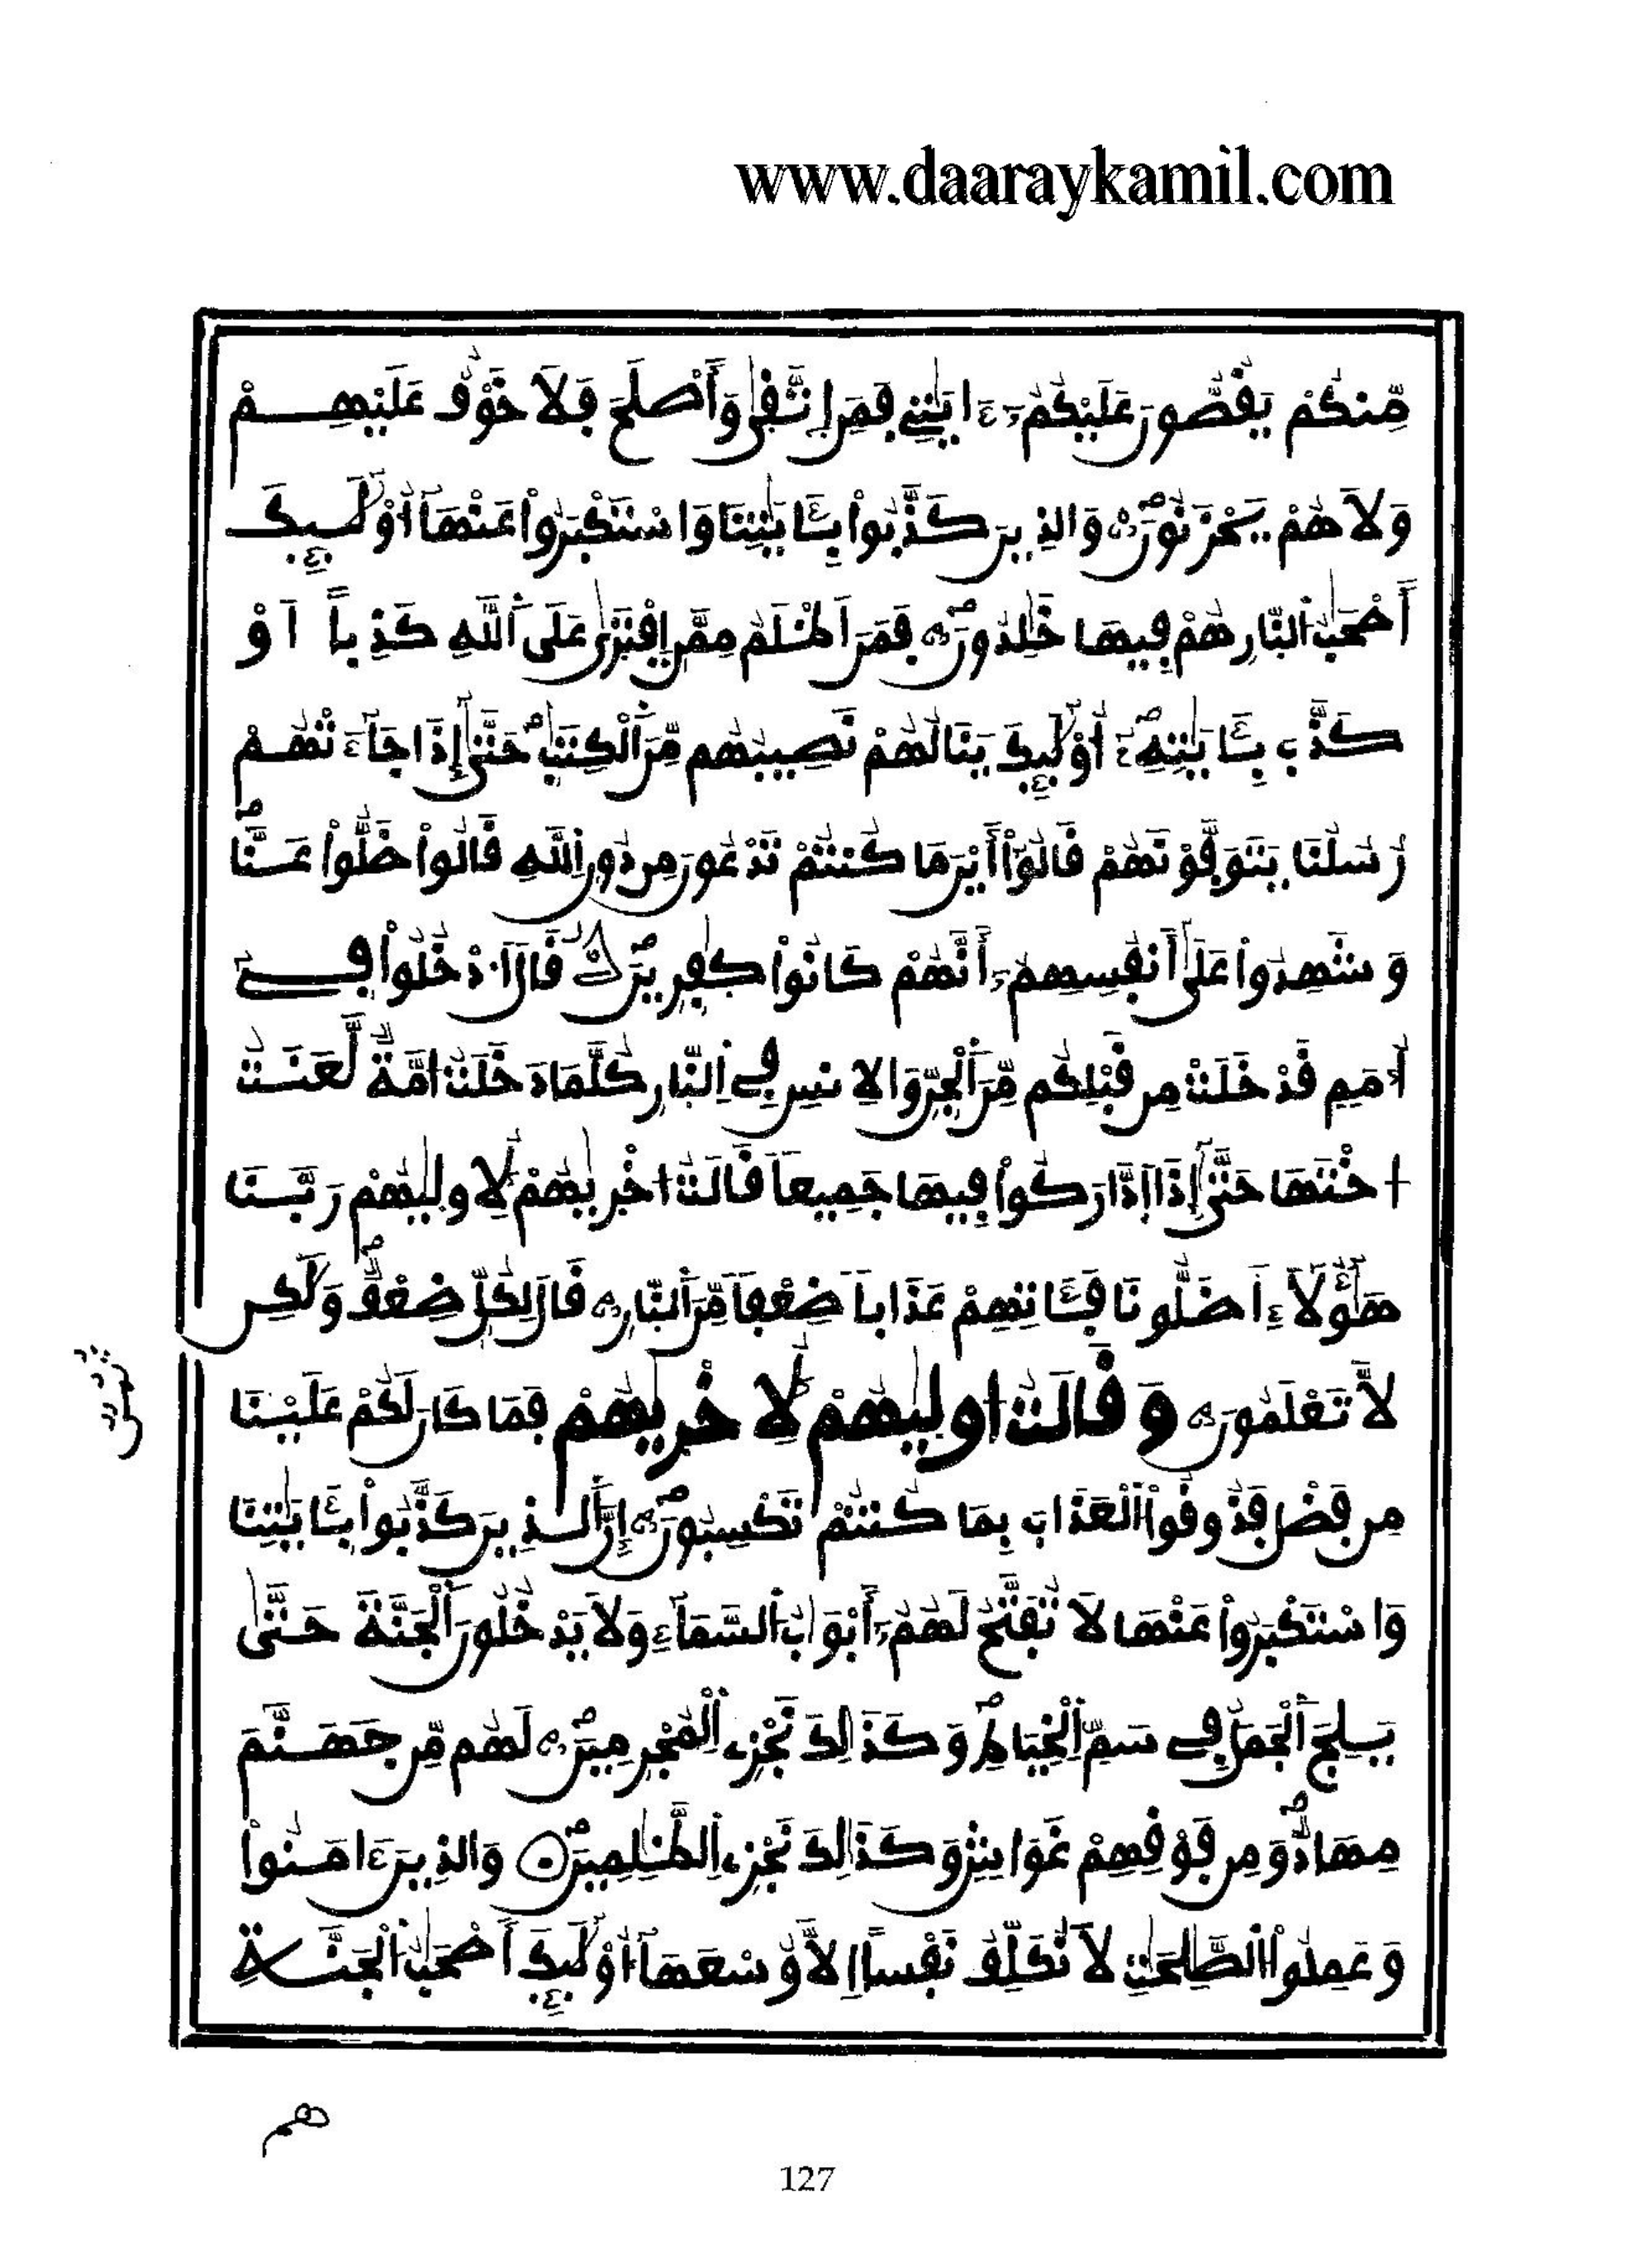 www.daaraykamil.com
مِّنكُمْ يَقُصُّونَ عَلَيْكُمُۥٓ ءَايَٰتِے فَمَنِ اِتَّقَىٰ وَأَصْلَحَ فَلَا خَوْفٌ عَلَيْهِمْ
وَلَا هُمْ يَحْزَنُونَۖ وَالذِينَ كَذَّبُواْ بِـَٔايَٰتِنَا وَاسْتَكْبَرُواْ عَنْهَآ أُوْلَٰٓئِكَ
أَصْحَٰبُ اُلنَّارِ هُمْ فِيهَا خَٰلِدُونَۖ فَمَنَ اَظْلَمُ مِمَّنِ اِفْتَرَىٰ عَلَى اَللَّهِ كَذِباً اَوْ
كَذَّبَ بِـَٔايَٰتِهِۦٓۖ أُوْلَٰٓئِكَ يَنَالُهُمْ نَصِيبُهُم مِّنَ اَلْكِتَٰبِۖ حَتَّىٰٓ إِذَا جَآءَتْهُمْ
رُسُلُنَا يَتَوَفَّوْنَهُمْ قَالُوٓاْ أَيْنَ مَا كُنتُمْ تَدْعُونَ مِن دُونِ اِللَّهِ قَالُواْ ضَلُّواْ عَنَّاۖ
وَشَهِدُواْ عَلَىٰٓ أَنفُسِهِمُۥٓ أَنَّهُمْ كَانُواْ كَٰفِرِينَۖ قَالَ اَ۟دْخُلُواْ فِےٓ
أُمَمٍ قَدْ خَلَتْ مِن قَبْلِكُم مِّنَ اَلْجِنِّ وَالِانسِ فِے اِلنَّارِ كُلَّمَا دَخَلَتُ امَّةٌ لَّعَنَتُ
اخْتَهَا حَتَّىٰٓ إِذَا اَ۪دَّارَكُواْ فِيهَا جَمِيعاً قَالَتُ اخْر۪يٰهُمْ لِأُول۪يٰهُمْ رَبَّنَا
هَٰٓؤُلَآءِ أَضَلُّونَا فَـَٔاتِهِمْ عَذَاباً ضِعْفاً مِّنَ اَلنَّارِ قَالَ لِكُلٍّ ضِعْفٌۖ وَلَٰكِن
لَّا تَعْلَمُونَ وَقَالَتُ اول۪يٰهُمْ لِأُخْر۪يٰهُمْ فَمَا كَانَ لَكُمْ عَلَيْنَا
مِن فَضْلٍ فَذُوقُواْ اُلْعَذَابَ بِمَا كُنتُمْ تَكْسِبُونَۖ إِنَّ اَلذِينَ كَذَّبُواْ بِـَٔايَٰتِنَا
وَاسْتَكْبَرُواْ عَنْهَا لَا تُفَتَّحُ لَهُمُۥٓ أَبْوَٰبُ اُلسَّمَآءِ وَلَا يَدْخُلُونَ اَلْجَنَّةَ حَتَّىٰ
يَلِجَ اَلْجَمَلُ فِے سَمِّ اِلْخِيَاطِۖ وَكَذَٰلِكَ نَجْزِے اِلْمُجْرِمِينَۖ لَهُم مِّن جَهَنَّمَ
مِهَادٌۖ وَمِن فَوْقِهِمْ غَوَاشٍۖ وَكَذَٰلِكَ نَجْزِے اِلظَّٰلِمِينَۖ وَالذِينَ ءَامَنُواْ
وَعَمِلُواْ اُلصَّٰلِحَٰتِ لَا نُكَلِّفُ نَفْساً اِلَّا وُسْعَهَآ أُوْلَٰٓئِكَ أَصْحَٰبُ اُلْجَنَّةِ
هم
127